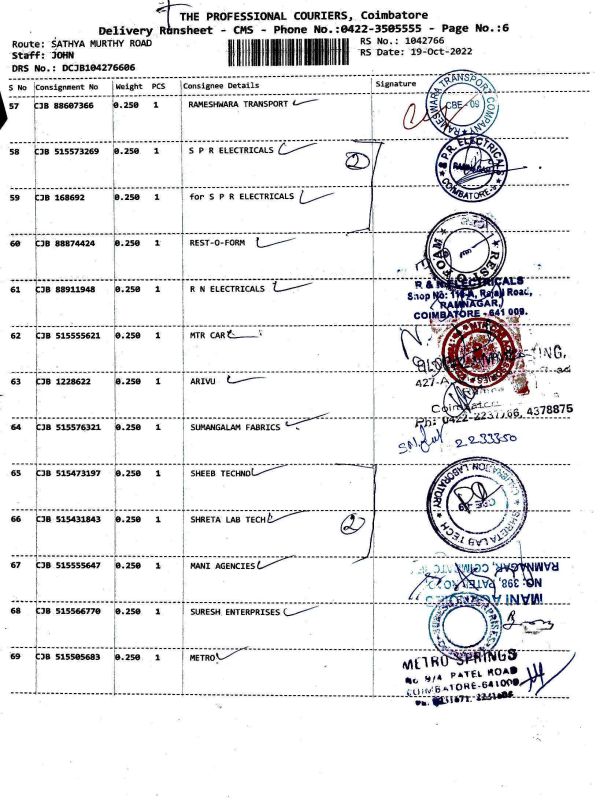 THE PROFESSIONAL COURIERS, Coimbatore
Delivery Runsheet - CMS - Phone No.:0422-3505555 - Page No.:6
Route: SATHYA MURTHY ROAD
RS No.: 1042766
Staff: JOHN
RS Date: 19-Oct-2022
DRS No.: DCJB104276606
S No Consignment No Weight PCS Consignee Details Signature
57 CJB 88607366 0.250 1 RAMESHWARA TRANSPORT
RAMESHWARA TRANSPORT COMPANY
CBE - 09
58 CJB 515573269 0.250 1 S P R ELECTRICALS
2
S.P.R. ELECTRICALS
RAMNAGAR
COIMBATORE-9
59 CJB 168692 0.250 1 for S P R ELECTRICALS
60 CJB 88874424 0.250 1 REST-O-FORM
REST O FOAM
61 CJB 88911948 0.250 1 R N ELECTRICALS
R & N ELECTRICALS
Shop No: 116-A, Rajaji Road,
RAMNAGAR,
COIMBATORE - 641 009.
62 CJB 515555621 0.250 1 MTR CAR
63 CJB 1228622 0.250 1 ARIVU
427-A
Coimbatore
Ph: 0422-2237766, 4378875
64 CJB 515576321 0.250 1 SUMANGALAM FABRICS
2233350
65 CJB 515473197 0.250 1 SHEEB TECHNO
66 CJB 515431843 0.250 1 SHRETA LAB TECH
2
SHRETA LAB TECH
CALIBRATION LABORATORY
67 CJB 515555647 0.250 1 MANI AGENCIES
MANI AGENCIES
NO. 398, PATEL ROAD
RAMNAGAR, COIMBATORE
68 CJB 515566770 0.250 1 SURESH ENTERPRISES
69 CJB 515505683 0.250 1 METRO
METRO SPRINGS
No 9/4 PATEL ROAD
COIMBATORE-641009